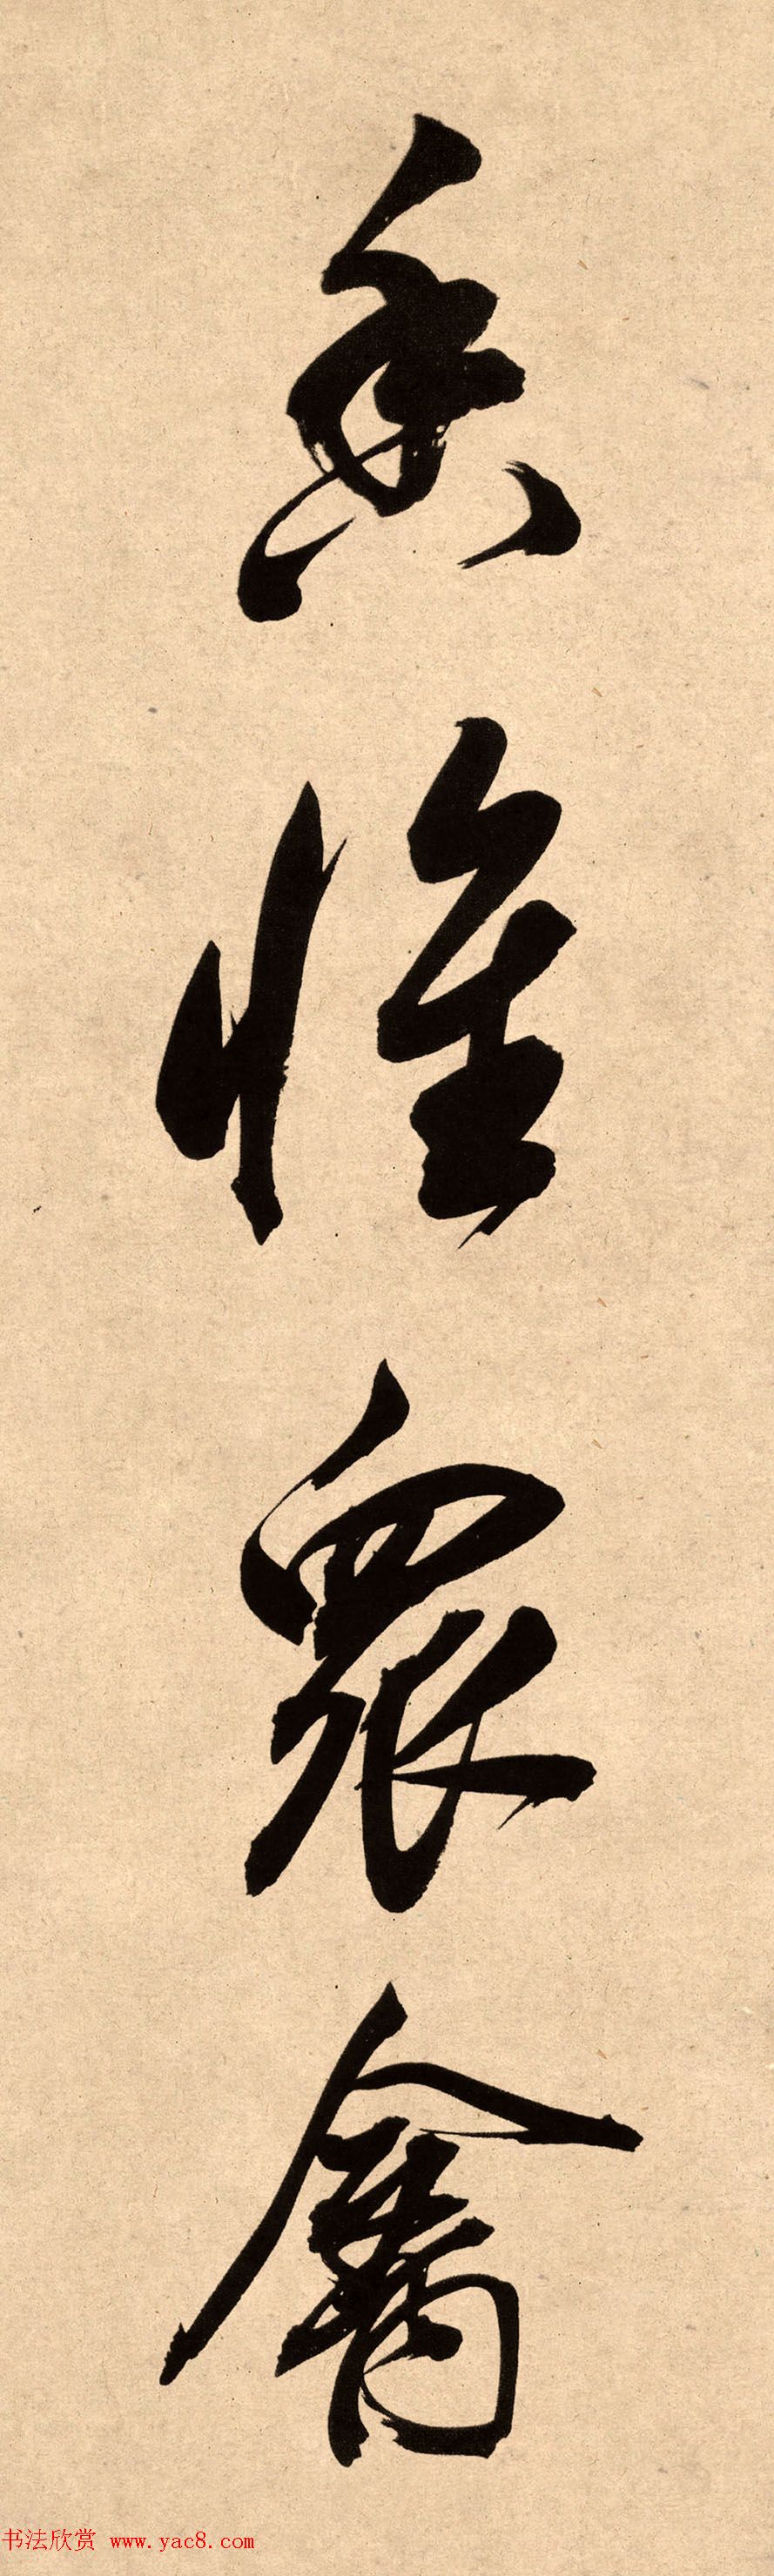 惟眾禽
书法欣赏 www.yac8.com